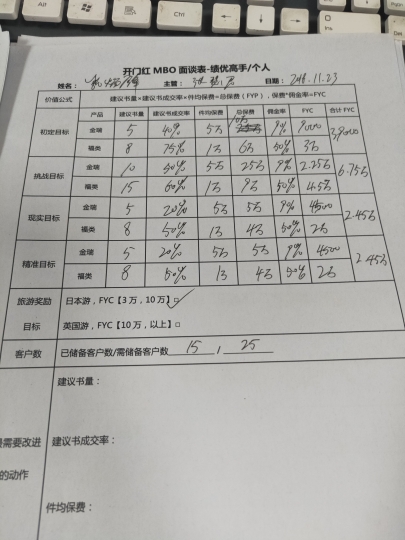 开门红 MBO 面谈表-绩优高手/个人
姓名： 主管： 日期：2018.11.23
价值公式 建议书量*建议书成交率*件均保费=总保费（FYP），保费*佣金率=FYC
产品 建议书量 建议书成交率 件均保费 总保费 佣金率 FYC 合计 FYC
初定目标 金瑞 5 40% 5万 10万 9% 9000 39000
福类 8 75% 1万 6万 50% 3万
挑战目标 金瑞 10 50% 5万 25万 9% 2.25万 6.75万
福类 15 60% 1万 9万 50% 4.5万
现实目标 金瑞 5 20% 5万 5万 9% 4500 2.45万
福类 8 50% 1万 4万 50% 2万
精准目标 金瑞 5 20% 5万 5万 9% 4500 2.45万
福类 8 50% 1万 4万 50% 2万
旅游奖励
目标
日本游，FYC【3 万，10 万】□✓
英国游，FYC【10 万，以上】□
客户数 已储备客户数/需储备客户数 15 / 25
建议书量：
需要改进
的动作
建议书成交率：
件均保费：